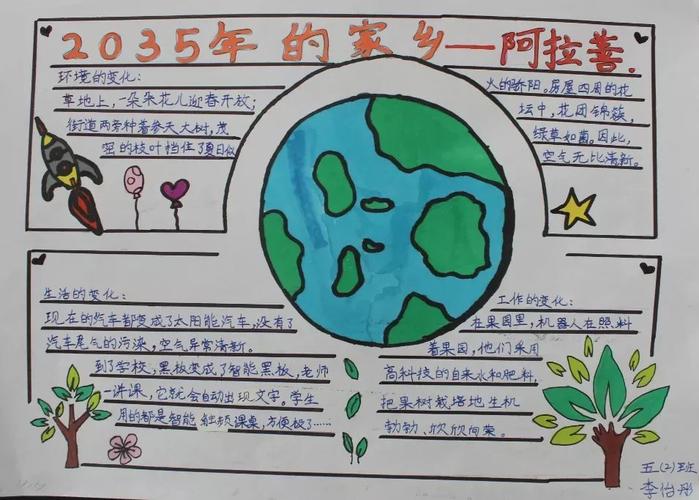 2035年的家乡——阿拉善.
环境的变化:
草地上,一朵朵花儿迎春开放;
街道两旁种着参天大树,茂
密的枝叶档住了夏日似
火的骄阳。房屋四周的花
坛中,花团锦簇,
绿草如茵。因此,
空气无比清新。
生活的变化:
现在的汽车都变成了太阳能汽车,没有了
汽车尾气的污染,空气异常清新。
到了学校,黑板变成了智能黑板,老师
一讲课,它就会自动出现文字。学生
用的都是智能触摸课桌,方便极了……
工作的变化:
在果园里,机器人在照料
着果园,他们采用
高科技的自来水和肥料,
把果树栽培地生机
勃勃、欣欣向荣。
五(2)班
李怡彤